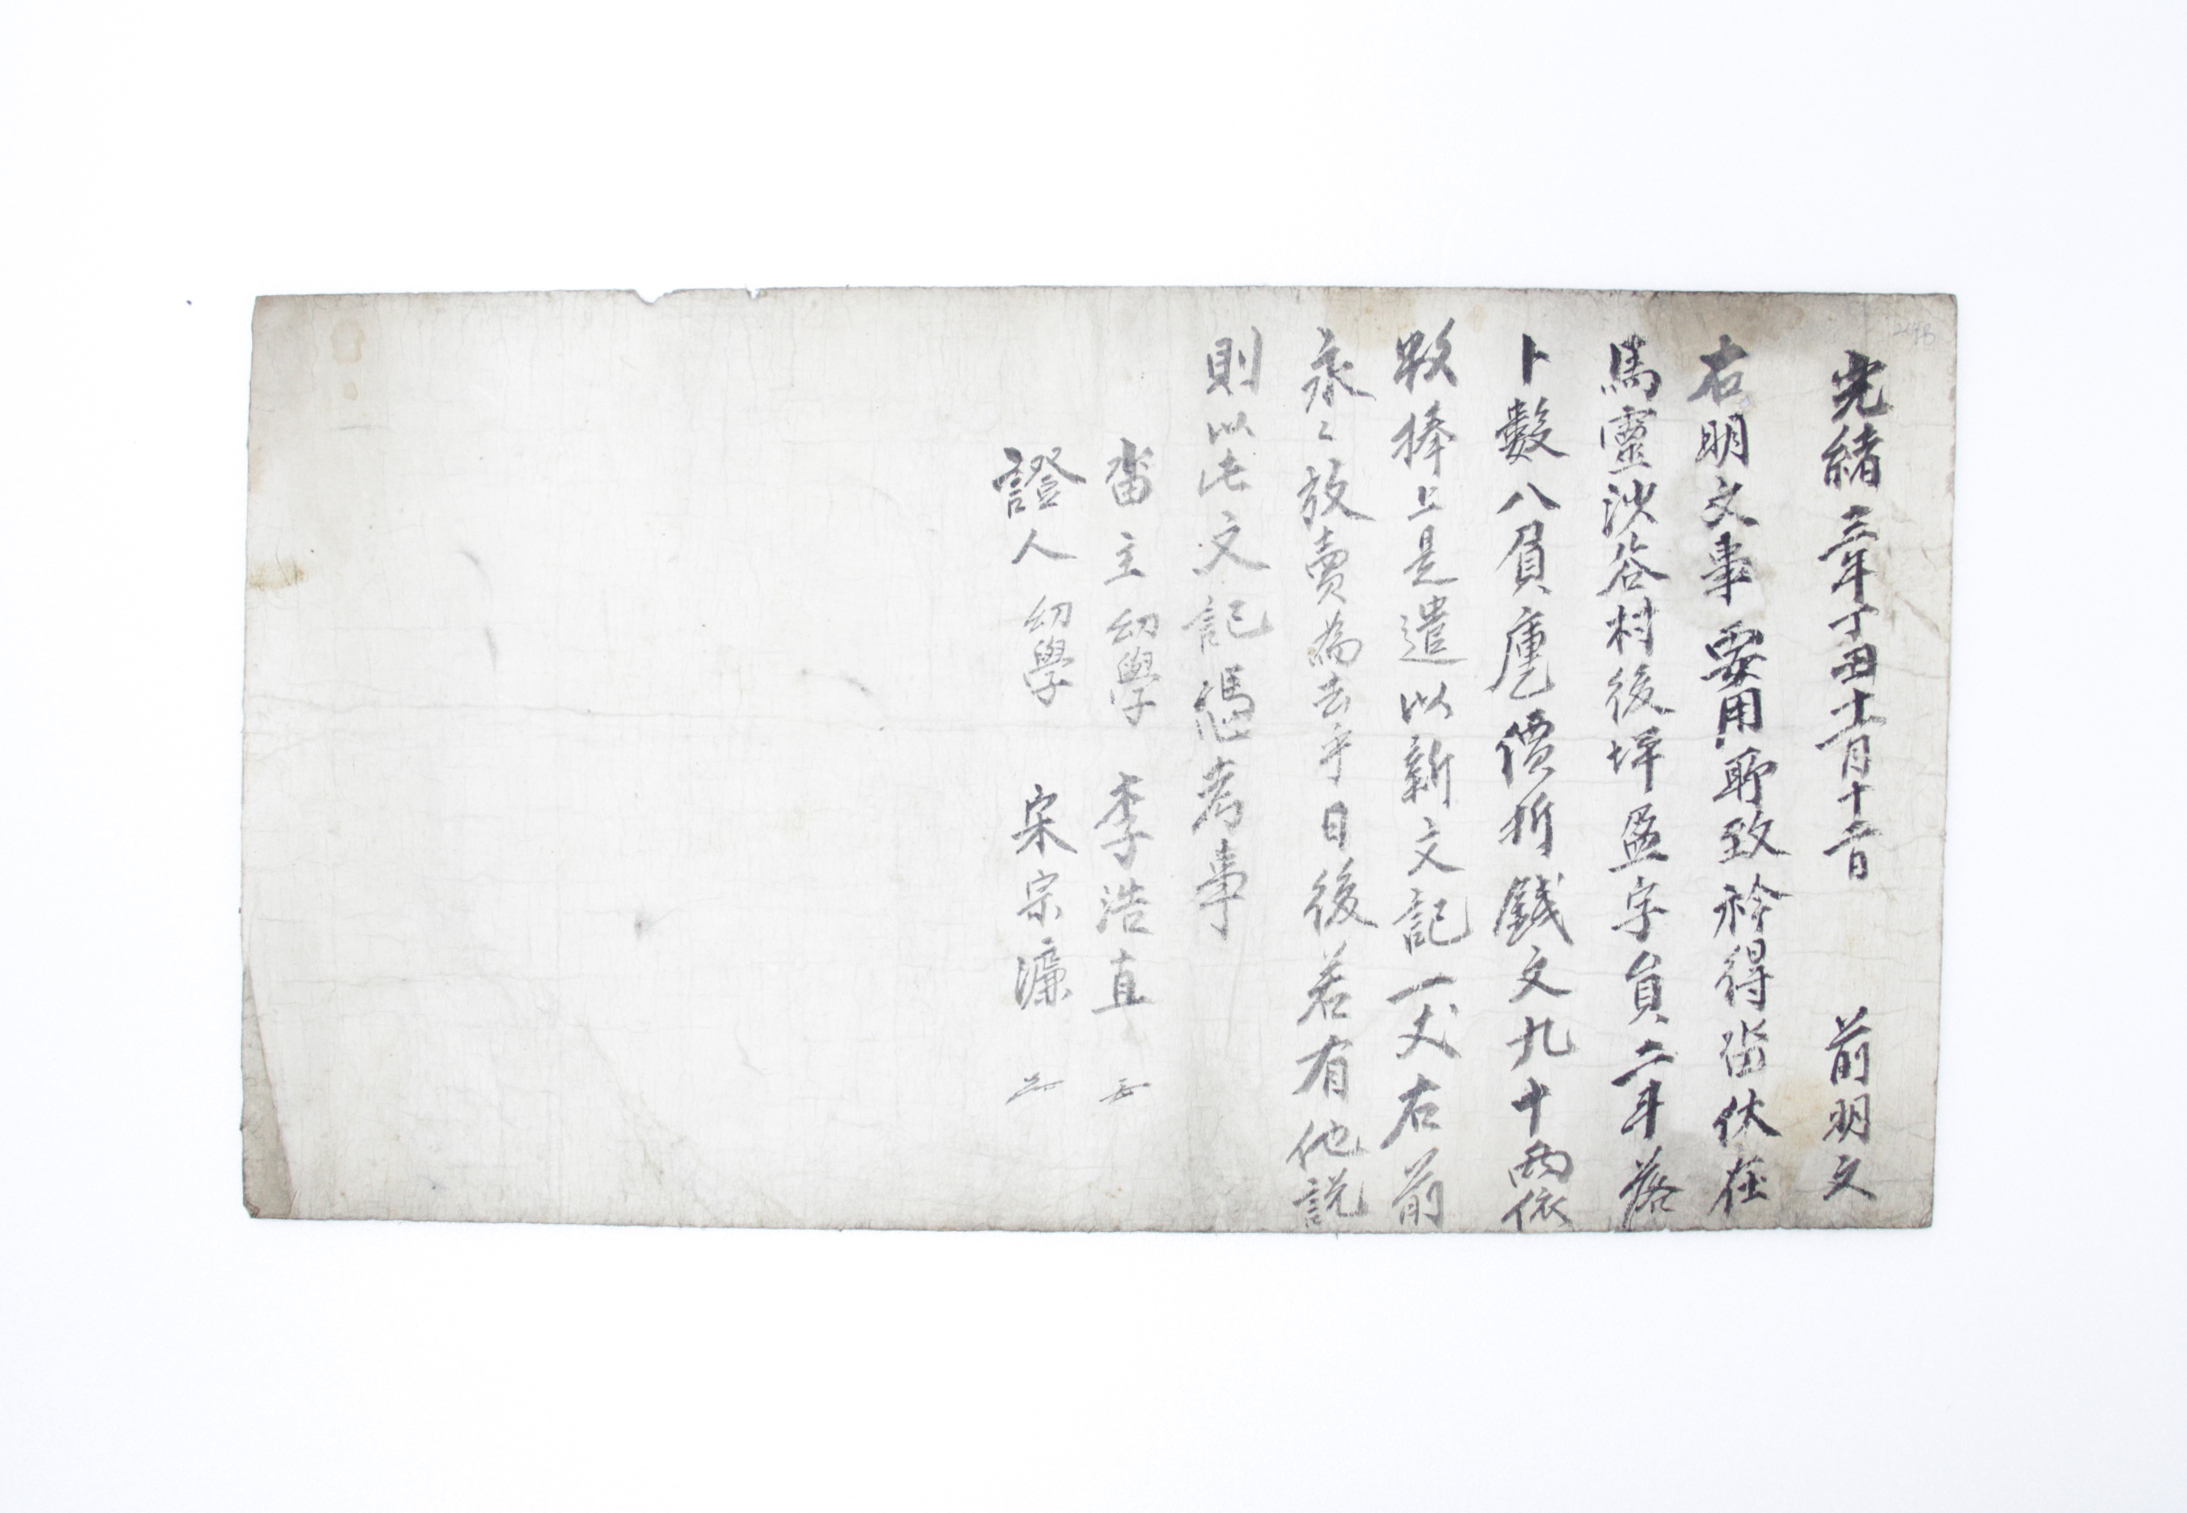 光緒三年丁丑十一月十二日 前明文
右明文事 要用所致衿得畓伏在
馬靈沙谷村後坪盈字員二斗落
卜數八負庫乙價折錢文九十兩依
數捧上是遣以新文記一丈右前
永〻放賣爲去乎日後若有他說
則以此文記憑考事
畓主 幼學 李浩直
證人 幼學 宋宗濂